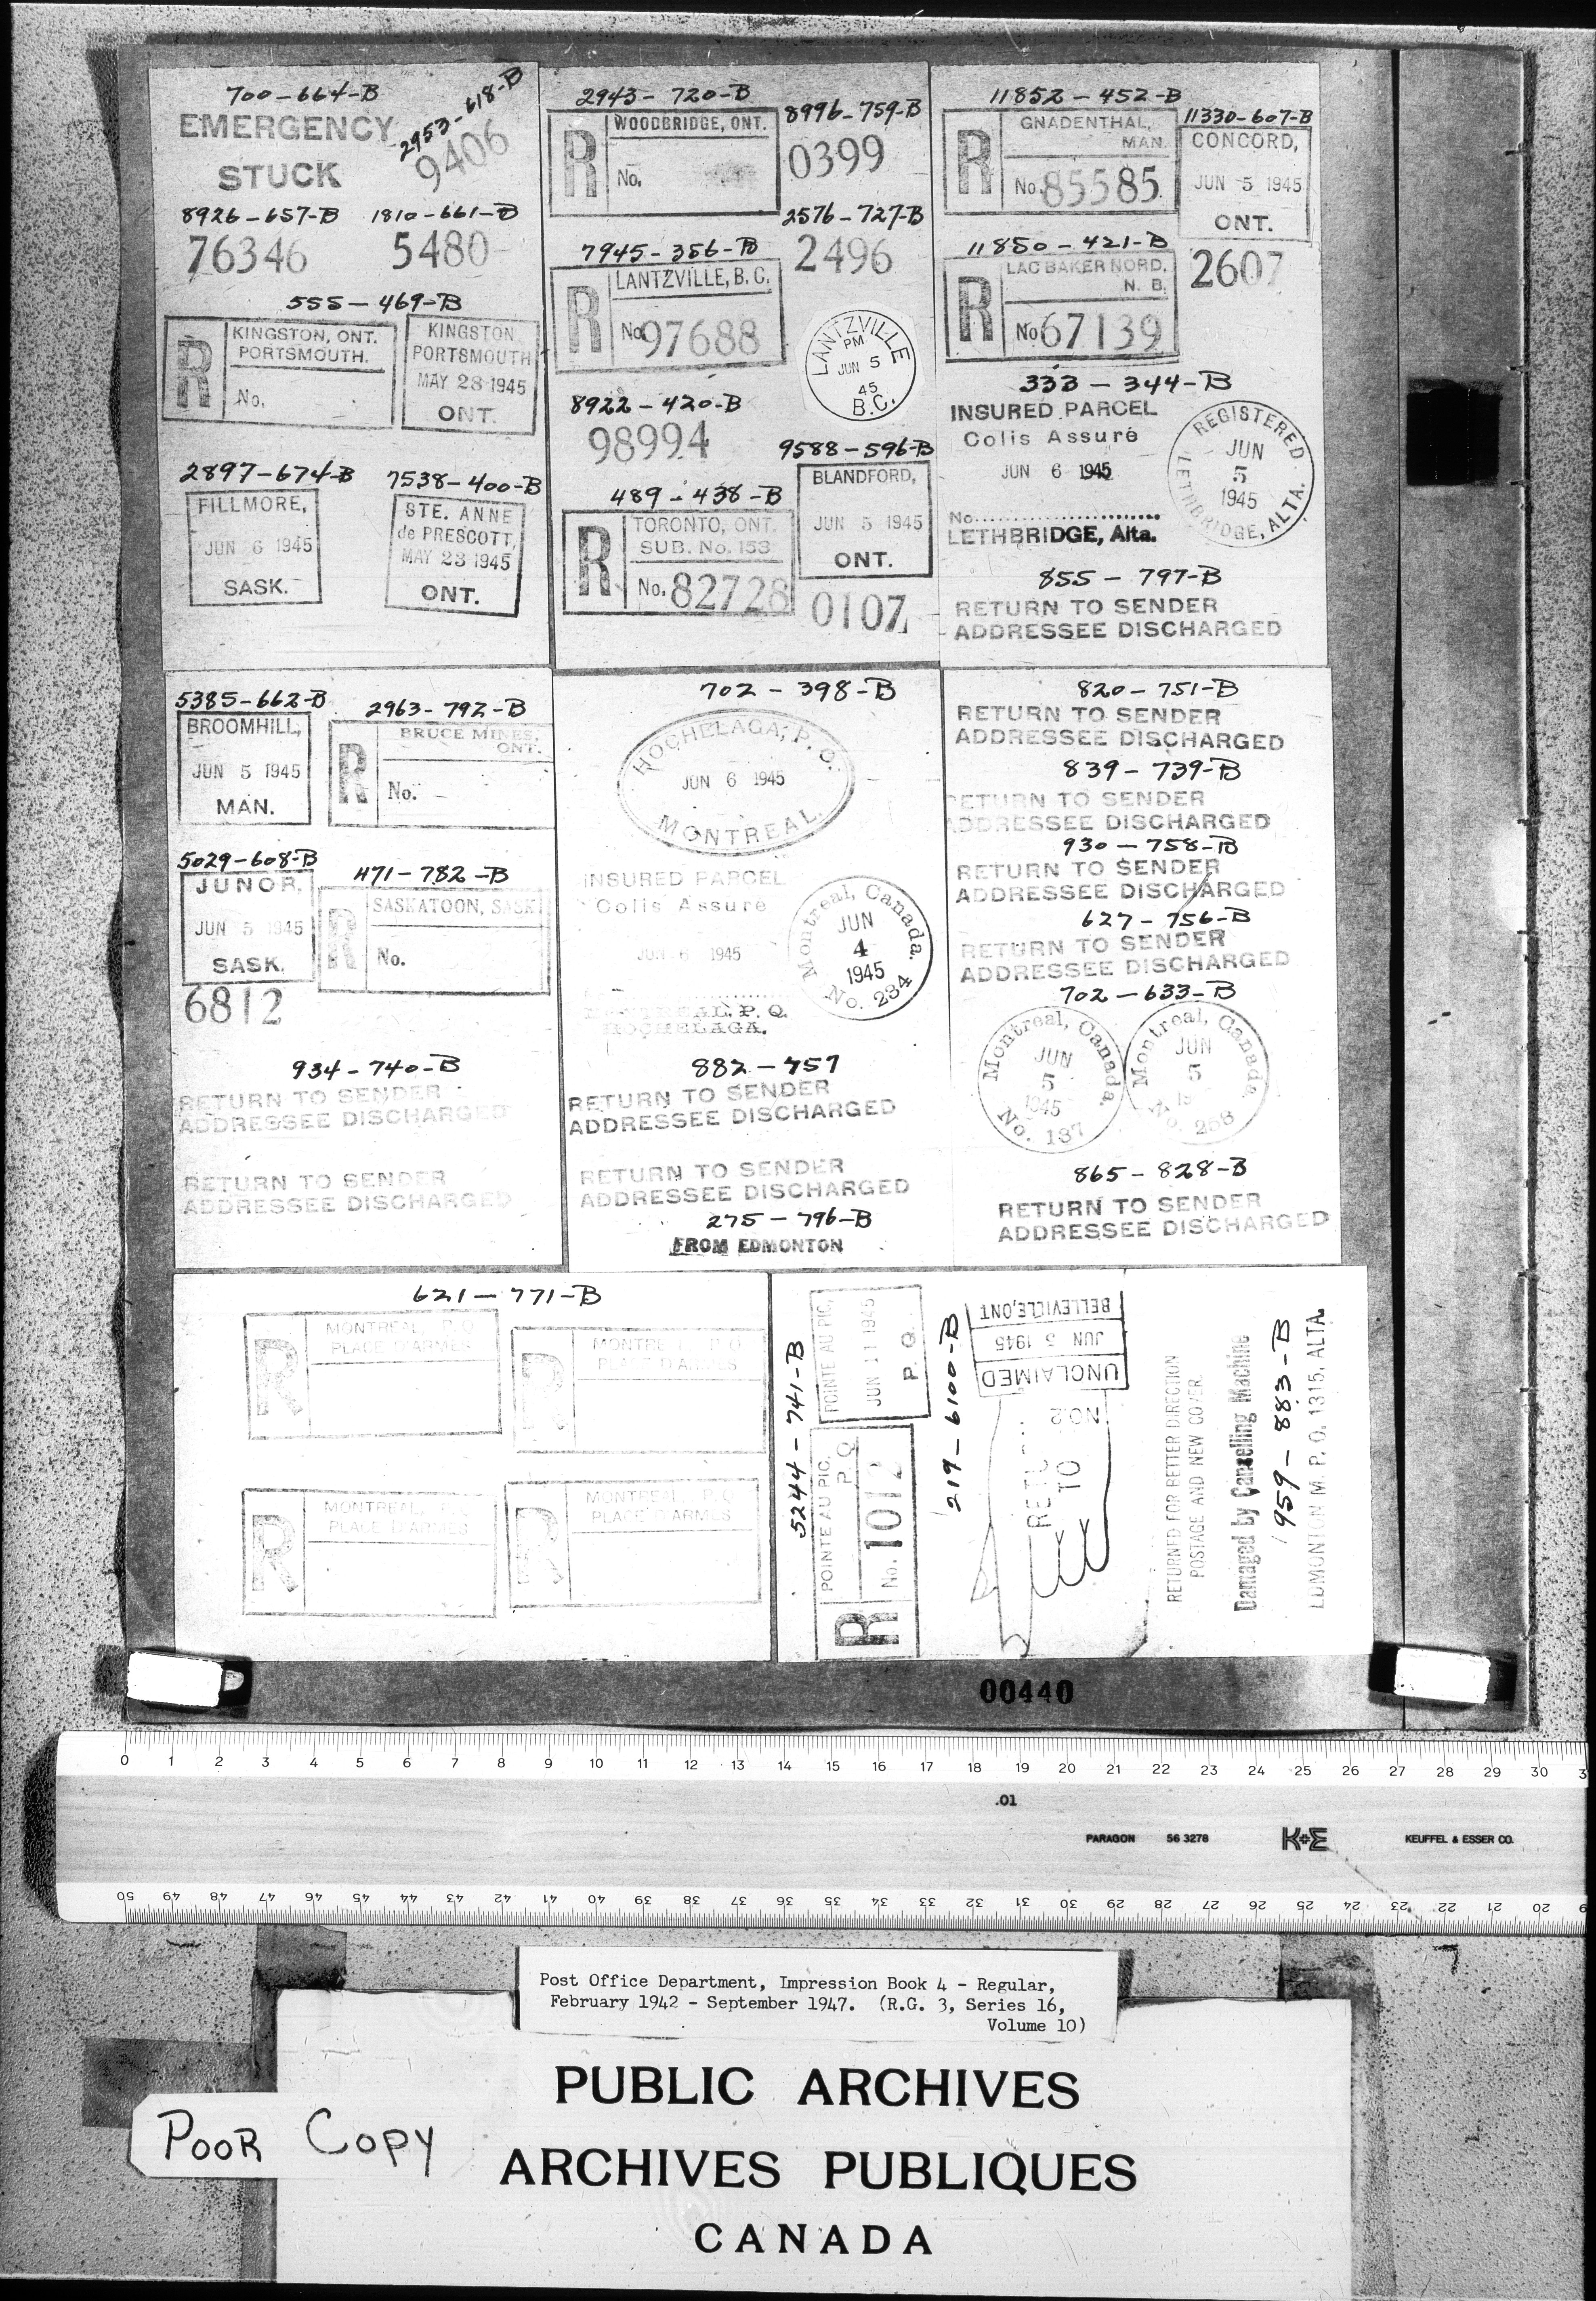 700-664-B
2953-618-B
EMERGENCY
9406
STUCK
8926-657-B 1810-661-B
76346 5480
555-469-B
R KINGSTON, ONT.
PORTSMOUTH.
No.
KINGSTON
PORTSMOUTH
MAY 28 1945
ONT.
2897-674-B
FILLMORE,
JUN 6 1945
SASK.
7538-400-B
STE. ANNE
de PRESCOTT,
MAY 23 1945
ONT.
2943-720-B
R WOODBRIDGE, ONT.
No.
8996-759-B
0399
2576-727-B
2496
7945-356-B
R LANTZVILLE, B.C.
No. 97688
LANTZVILLE
PM
JUN 5
45
B.C.
8922-420-B
98994
9588-596-B
BLANDFORD,
JUN 5 1945
ONT.
0107
489-438-B
R TORONTO, ONT.
SUB. No. 153
No. 82728
11852-452-B
R GNADENTHAL,
MAN.
No. 85585
11330-607-B
CONCORD,
JUN 5 1945
ONT.
2607
11850-421-B
R LAC BAKER NORD,
N. B.
No 67139
333-344-B
INSURED PARCEL
Colis Assuré
JUN 6 1945
No.
LETHBRIDGE, Alta.
REGISTERED
JUN
5
1945
LETHBRIDGE, ALTA.
855-797-B
RETURN TO SENDER
ADDRESSEE DISCHARGED
5385-662-B
BROOMHILL,
JUN 5 1945
MAN.
2963-792-B
R BRUCE MINES,
ONT.
No.
5029-608-B
JUNOR,
JUN 5 1945
SASK.
6812
471-782-B
R SASKATOON, SASK
No.
934-740-B
RETURN TO SENDER
ADDRESSEE DISCHARGED
RETURN TO SENDER
ADDRESSEE DISCHARGED
702-398-B
HOCHELAGA, P. Q.
JUN 6 1945
MONTREAL
INSURED PARCEL
Colis Assuré
JUN 6 1945
MONTREAL, P. Q.
HOCHELAGA.
Montreal, Canada.
JUN
4
1945
No. 234
882-757
RETURN TO SENDER
ADDRESSEE DISCHARGED
RETURN TO SENDER
ADDRESSEE DISCHARGED
275-796-B
FROM EDMONTON
820-751-B
RETURN TO SENDER
ADDRESSEE DISCHARGED
839-739-B
RETURN TO SENDER
ADDRESSEE DISCHARGED
930-758-B
RETURN TO SENDER
ADDRESSEE DISCHARGED
627-756-B
RETURN TO SENDER
ADDRESSEE DISCHARGED
702-633-B
Montreal, Canada.
JUN
5
1945
No. 137
Montreal, Canada.
JUN
5
No.
865-828-B
RETURN TO SENDER
ADDRESSEE DISCHARGED
621-771-B
R MONTREAL, P.Q
PLACE D'ARMES
R MONTREAL, P.Q
PLACE D'ARMES
R MONTREAL,
PLACE D'ARMES
R MONTREAL, P.Q
PLACE D'ARMES
5244-741-B
POINTE AU PIC,
JUN 11 1945
P. Q.
R POINTE AU PIC,
P. Q
No. 1012
219-6100-B
BELLEVILLE, ONT
JUN 5 1945
UNCLAIMED
NO.2
TO
RETURNED FOR BETTER DIRECTION
POSTAGE AND NEW COVER
Damaged by Cancelling Machine
959-883-B
EDMONTON M. P. O. 1315, ALTA.
00440
0 1 2 3 4 5 6 7 8 9 10 11 12 13 14 15 16 17 18 19 20 21 22 23 24 25 26 27 28 29 30
.01
PARAGON 56 3278 K+E KEUFFEL & ESSER CO.
50 49 48 47 46 45 44 43 42 41 40 39 38 37 36 35 34 33 32 31 30 29 28 27 26 25 24 23 22 21 20
Post Office Department, Impression Book 4 - Regular,
February 1942 - September 1947. (R.G. 3, Series 16,
Volume 10)
PUBLIC ARCHIVES
POOR COPY
ARCHIVES PUBLIQUES
CANADA